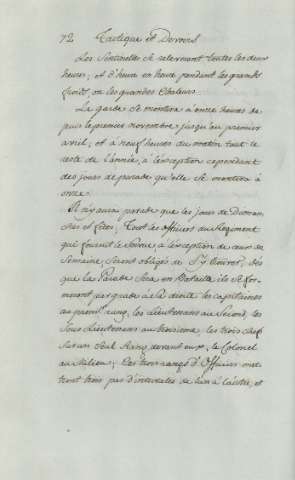 72 Tactique et Devoirs
Les Sentinelles se releveront toutes les deux
heures, et d'heure en heure pendant les grands
froids, ou les grandes Chaleurs.
La garde se montera a onze heures de
puis le premier novembre jusqu'au premier
avril, et a neuf heures du matin tout le
reste de l'année, a l'exception cependant
des jours de parade qu'elle se montera à
onze.
Il n'y aura parade que les jours de Diman
ches et fêtes; Tous les officiers du Régiment
qui feront le Service, a l'exception de ceux de
Semaine, seront obligés de s'y trouver. Dès
que la Parade sera en Bataille ils se for
meront par grade à la droite les capitaines
au premier rang, les Lieutenans au Second, les
Sous Lieutenans au troisieme les trois chefs
sur un seul Rang devant eux, le Colonel
au Milieu; Ces trois rangs d'Officiers met
tront trois pas d'intervalle de l'un à l'autre, et